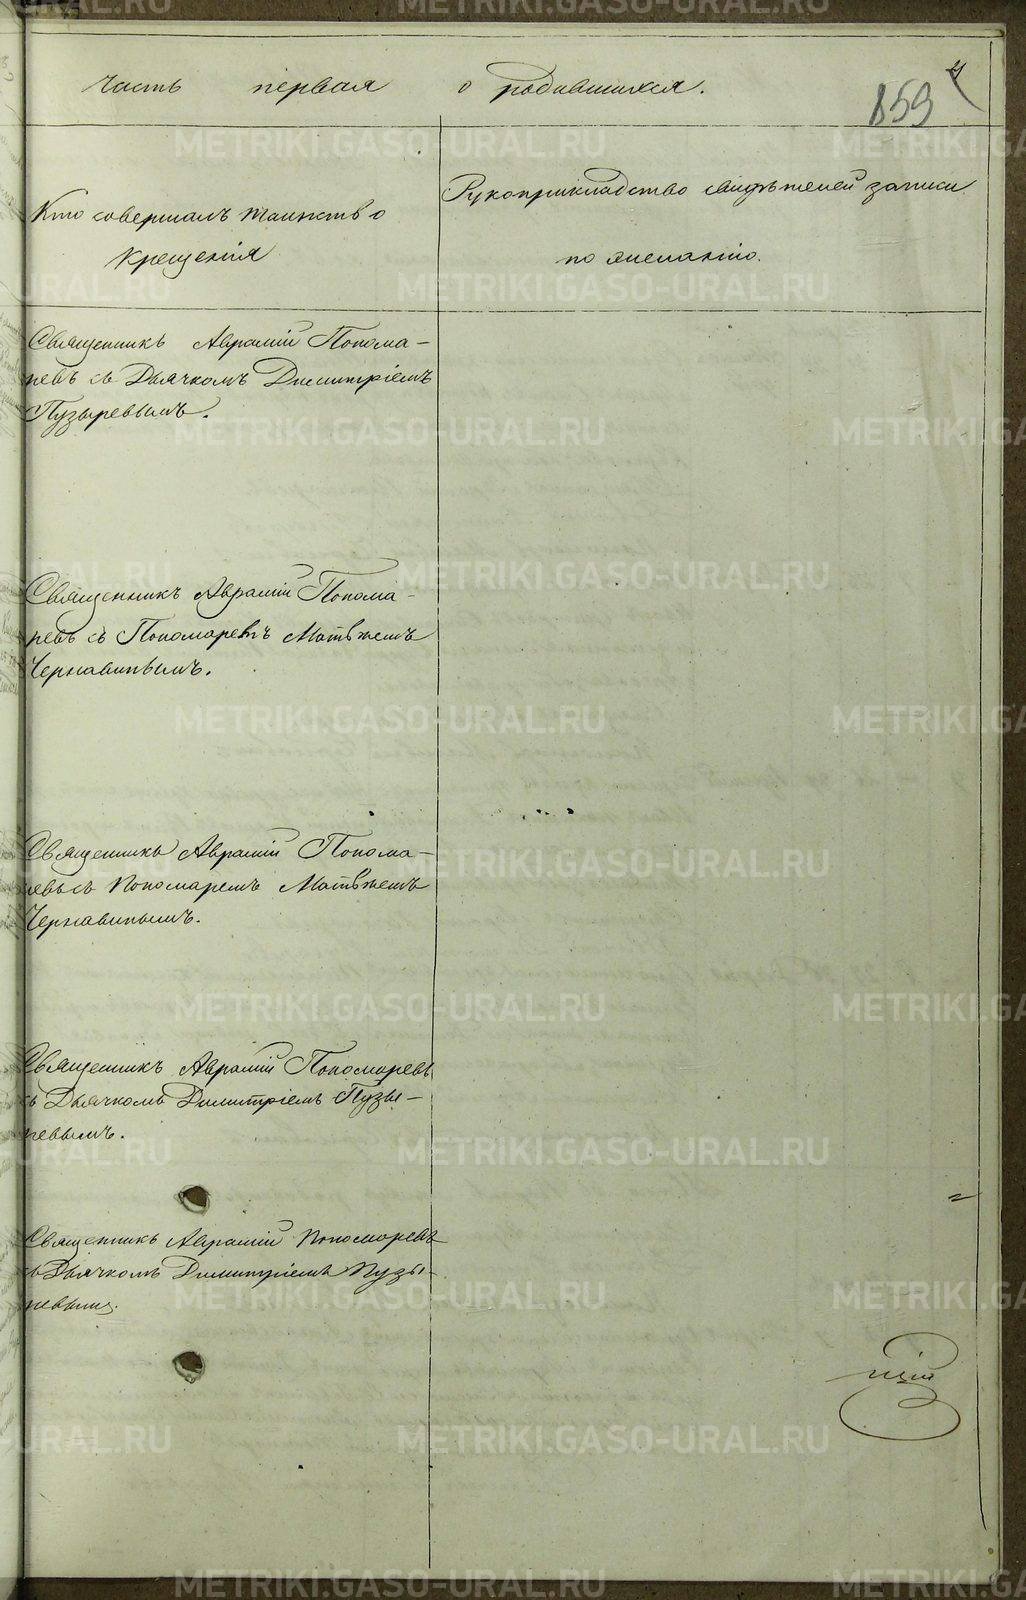 часть первая о родившихся.
4
859
Кто совершалъ таинство
крещенія
Рукоприкладство свидѣтелей записи
по желанію.
Священникъ Аврамій Попома-
ревъ съ Дьячкомъ Димитріемъ
Пузыревымъ.
Священникъ Аврамій Попома-
ревъ съ Пономаремъ Матвѣемъ
Чернавинымъ.
Священникъ Аврамій Попома-
ревъ съ Пономаремъ Матвѣемъ
Чернавинымъ.
Священникъ Аврамій Пономаревъ
съ Дьячкомъ Димитріемъ Пузы-
ревымъ.
Священникъ Аврамій Пономаревъ
съ Дьячкомъ Димитріемъ Пузы-
ревымъ.
METRIKI.GASO-URAL.RU